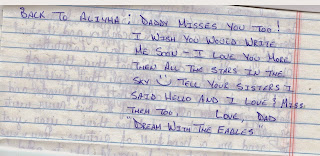 BACK TO ALIYHA: DADDY MISSES YOU TOO!
I WISH YOU WOULD WRITE
ME SOON - I LOVE YOU MORE
THEN ALL THE STARS IN THE
SKY TELL YOUR SISTERS I
SAID HELLO AND I LOVE & MISS
THEM TOO, LOVE, DAD
"DREAM WITH THE EAGLES"